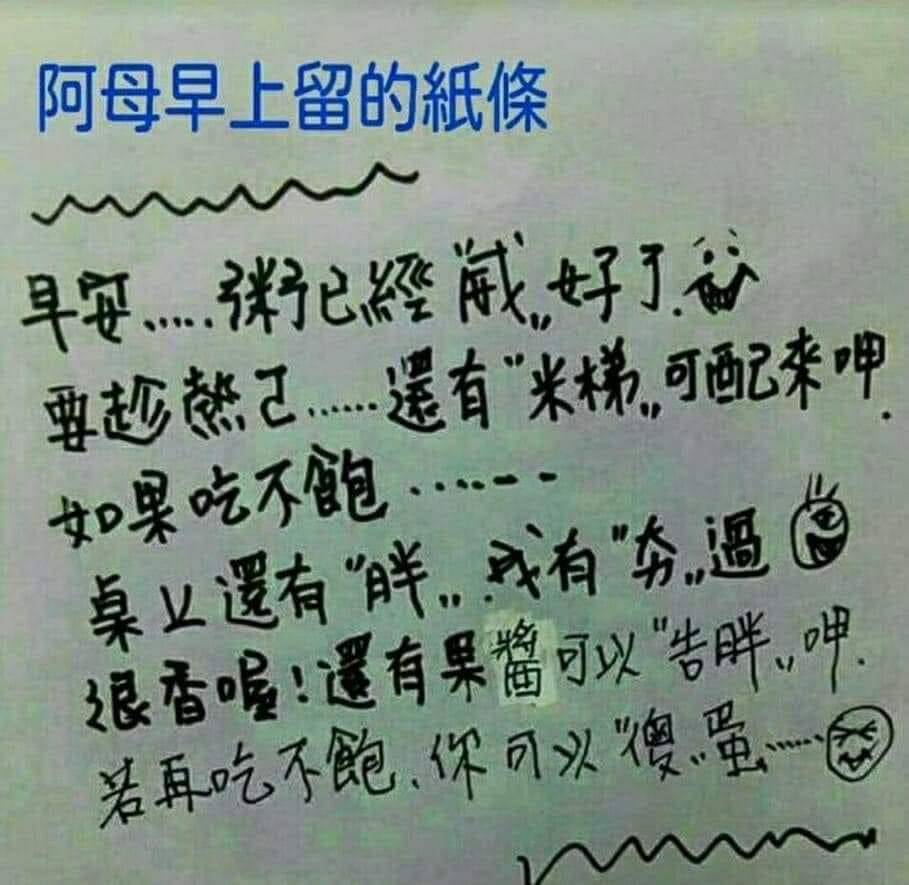 阿母早上留的紙條
早安.....粥已經"威"好了.
要趁熱己......還有"米梯"可配來呷.
如果吃不飽.......
桌上還有"胖".我有"夯"過
很香喔!還有果醬可以"告胖"呷.
若再吃不飽.你可以"傻"蛋......